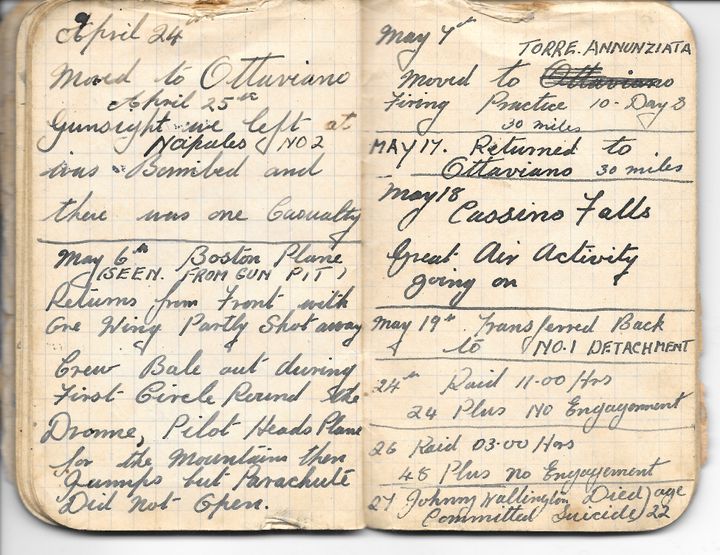 April 24th
Moved to Ottaviano
April 25th
Gunsight we left at
Napales No 2
was Bombed and
there was one Casualty
May 6th Boston Plane
(SEEN. FROM GUN PIT)
Returns from Front with
One Wing Partly Shot away
Crew Bale out during
First Circle Round the
Drome, Pilot Heads Plane
for the Mountains then
Jumps but Parachute
Did Not Open.
May 7th
TORRE. ANNUNZIATA
Moved to Ottaviano
Firing Practice 10-Days
30 miles
MAY 17. Returned to
Ottaviano 30 miles
May 18
Cassino Falls
Great Air Activity
going on
May 19th Transferred Back
to NO.1 DETACHMENT
24th Raid 11-00 Hrs
24 Plus No Engagement
26 Raid 03-00 Hrs
48 Plus no Engagement
27 Johnny Wallington Died age
Committed Suicide 22